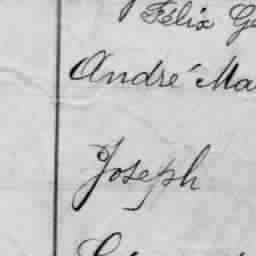 Félix Ge
André Ma
Joseph